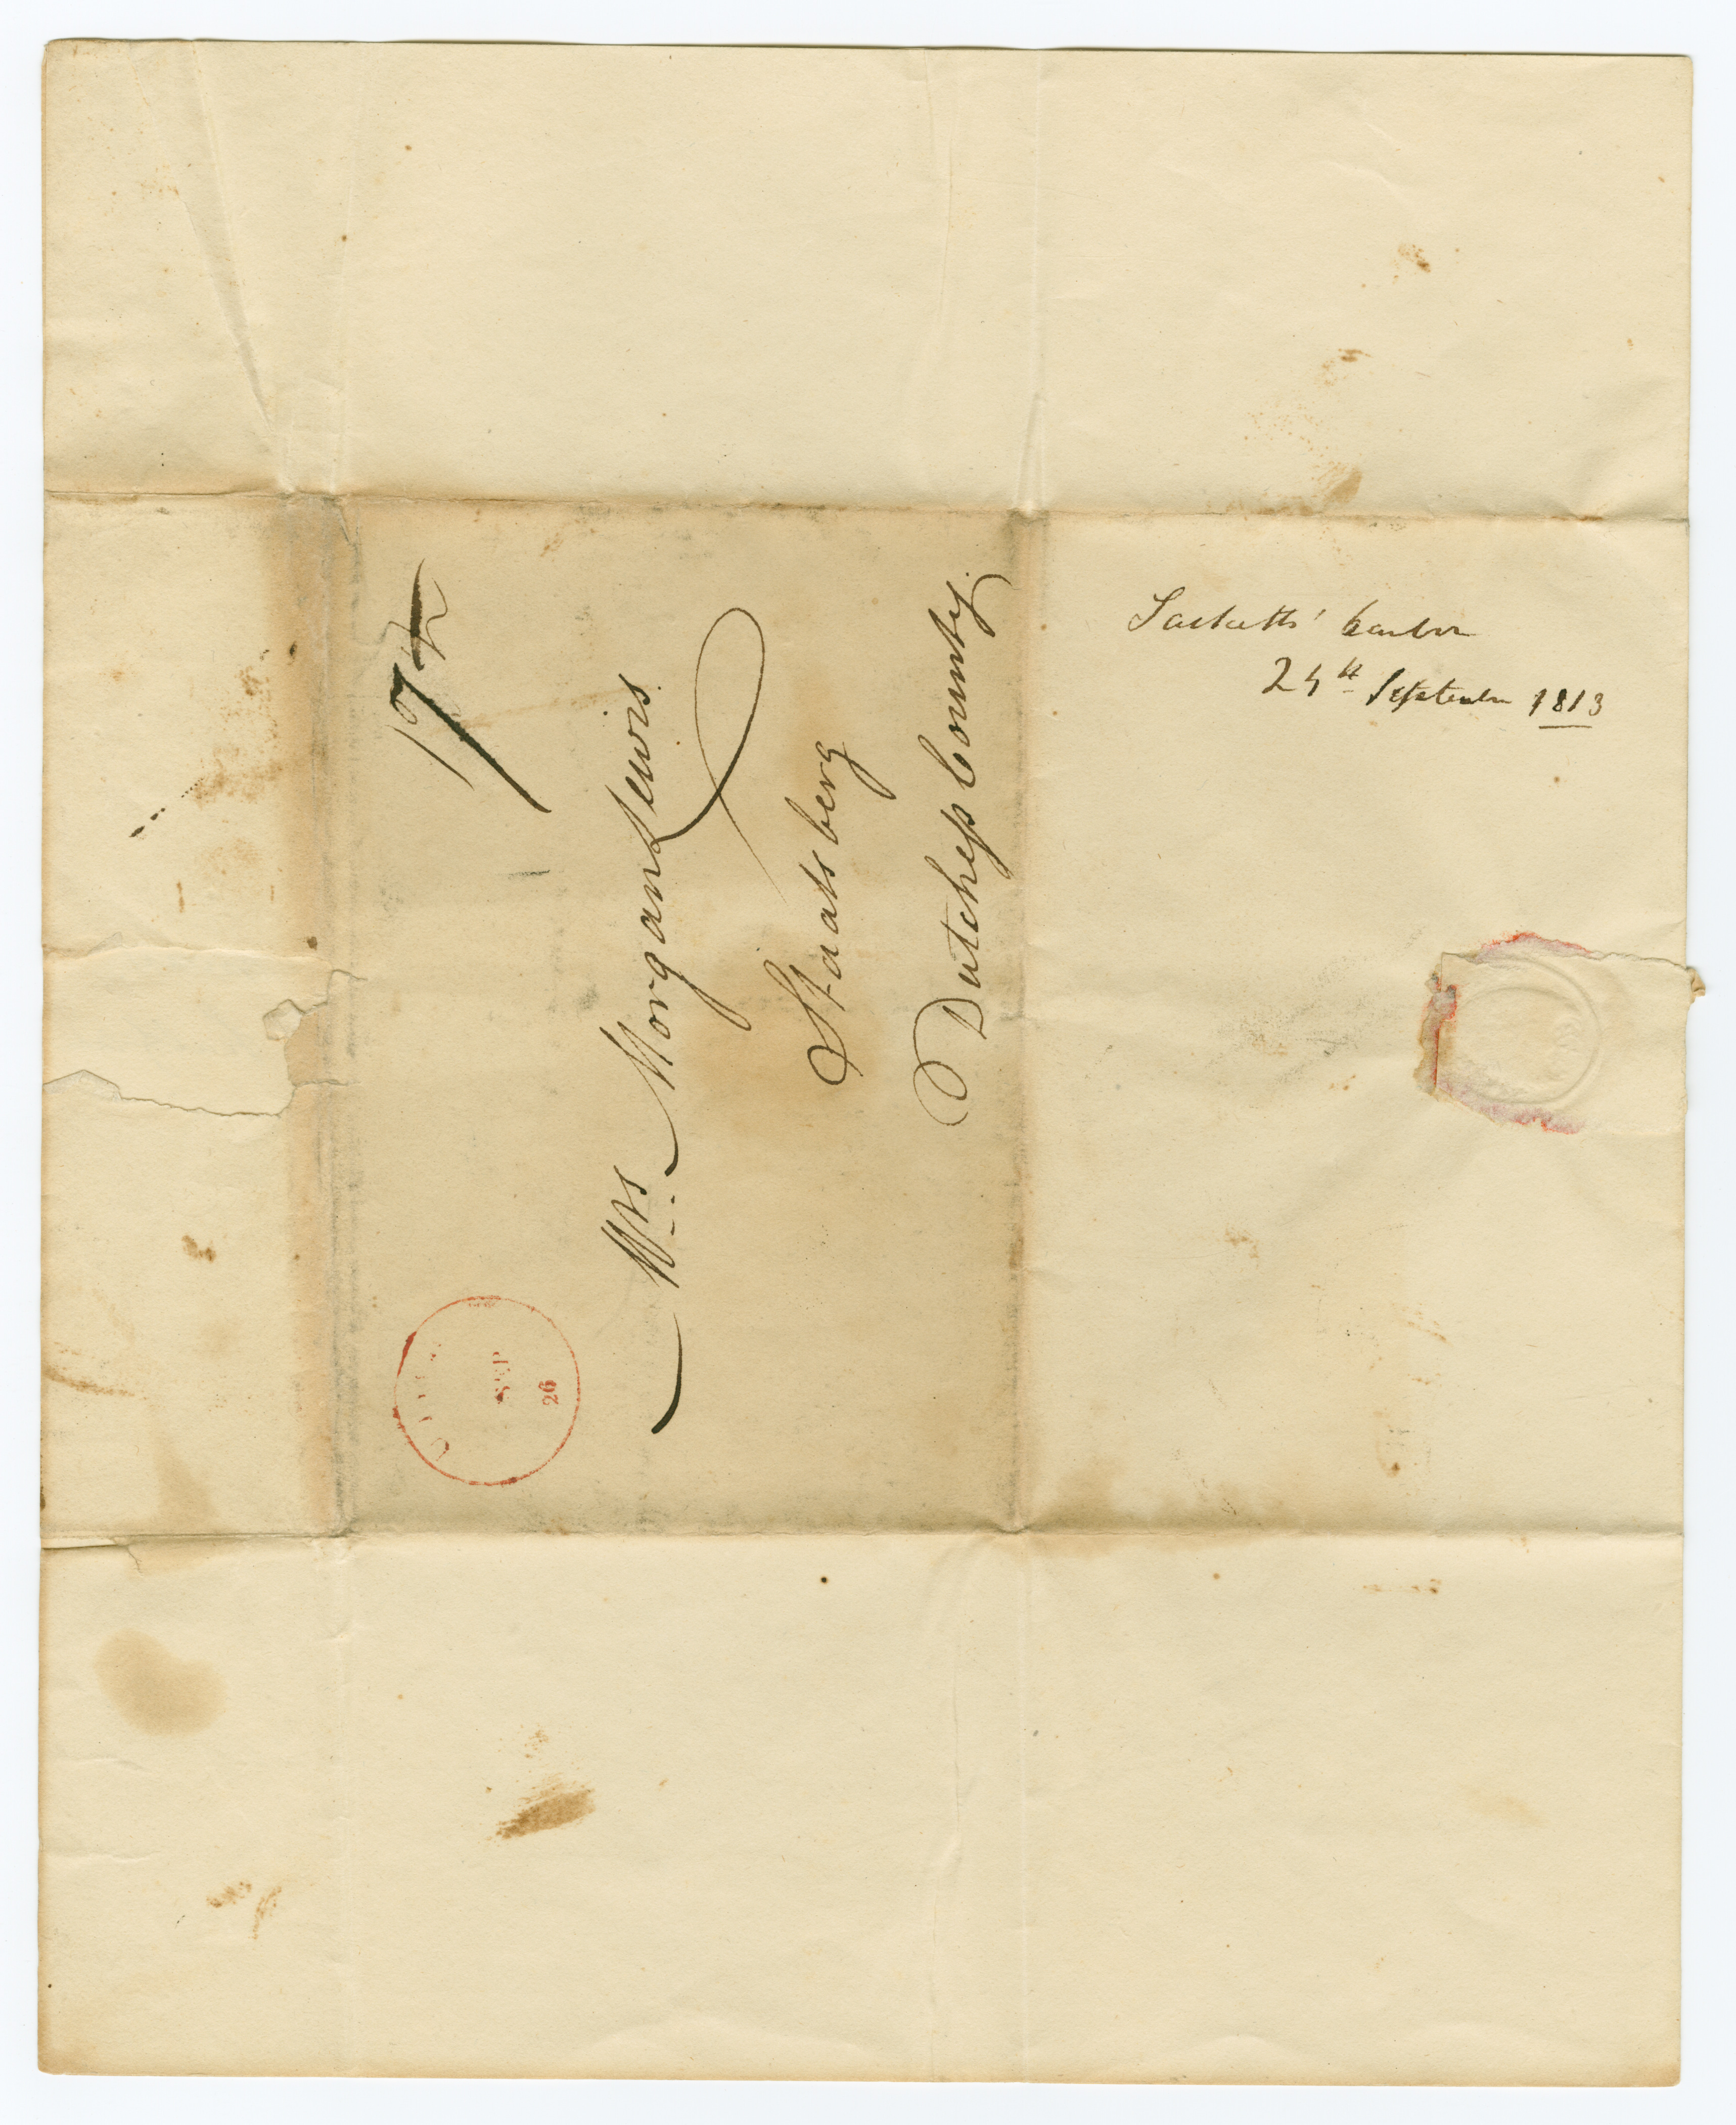 17
Mrs. Morgan Lewis
Staatsberg
Dutchess County.
SEP
26
Sacketts' harbor
24th September 1813